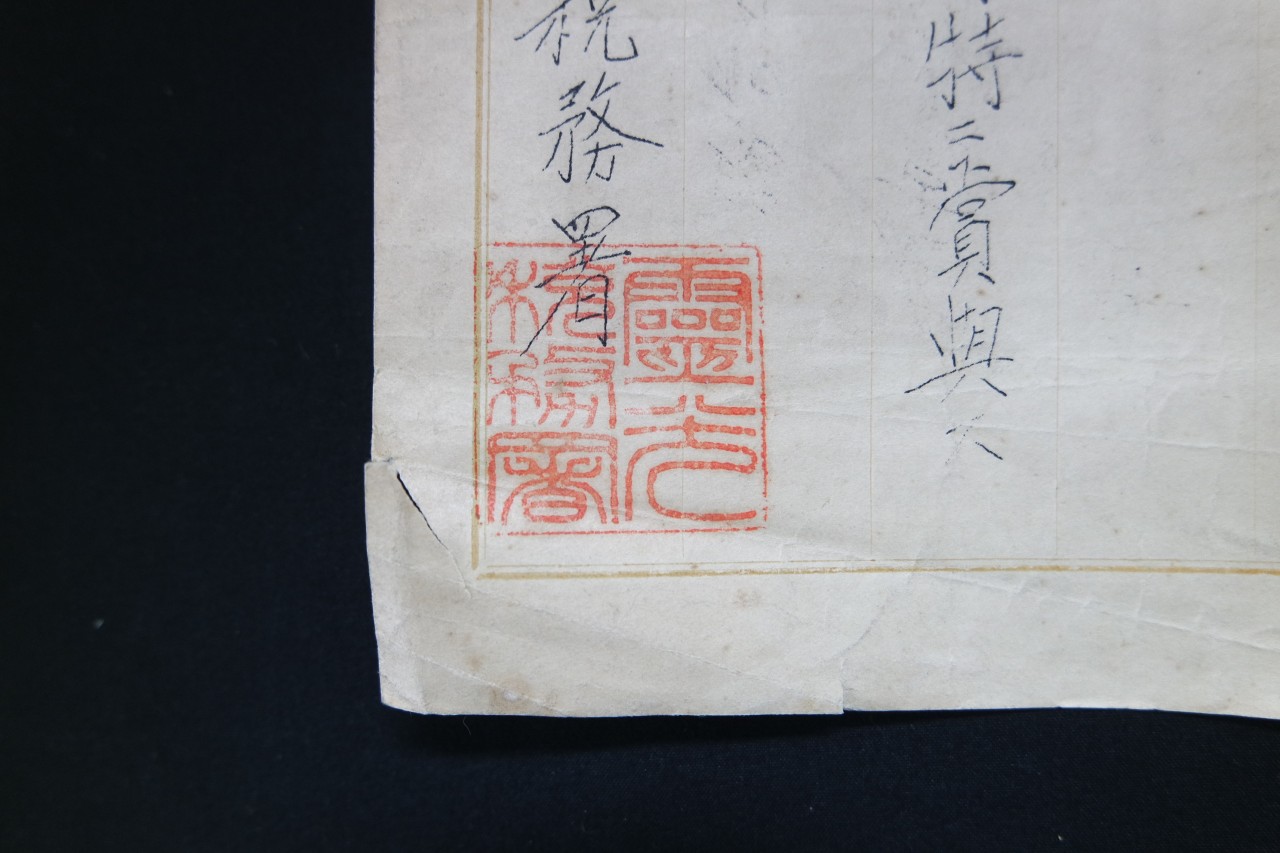 特ニ賞與ス
税務署
靈光
税務署